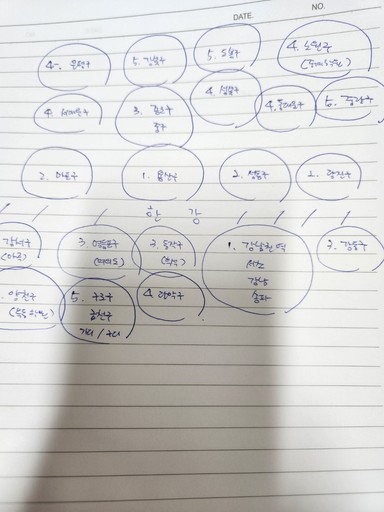 DATE.
NO.
4. 은평구
5. 강북구
5. 도봉구
4. 노원구
4. 서대문구
3. 종로구
중구
4. 성북구
4. 동대문구
5. 중랑구
2. 마포구
1. 용산구
2. 성동구
2. 광진구
한 강
강서구
(마곡)
3. 영등포구
(여의도)
3. 동작구
(흑석)
1. 강남권역
서초
강남
송파
3. 강동구
양천구
5. 구로구
금천구
가디 / 구디
4. 관악구